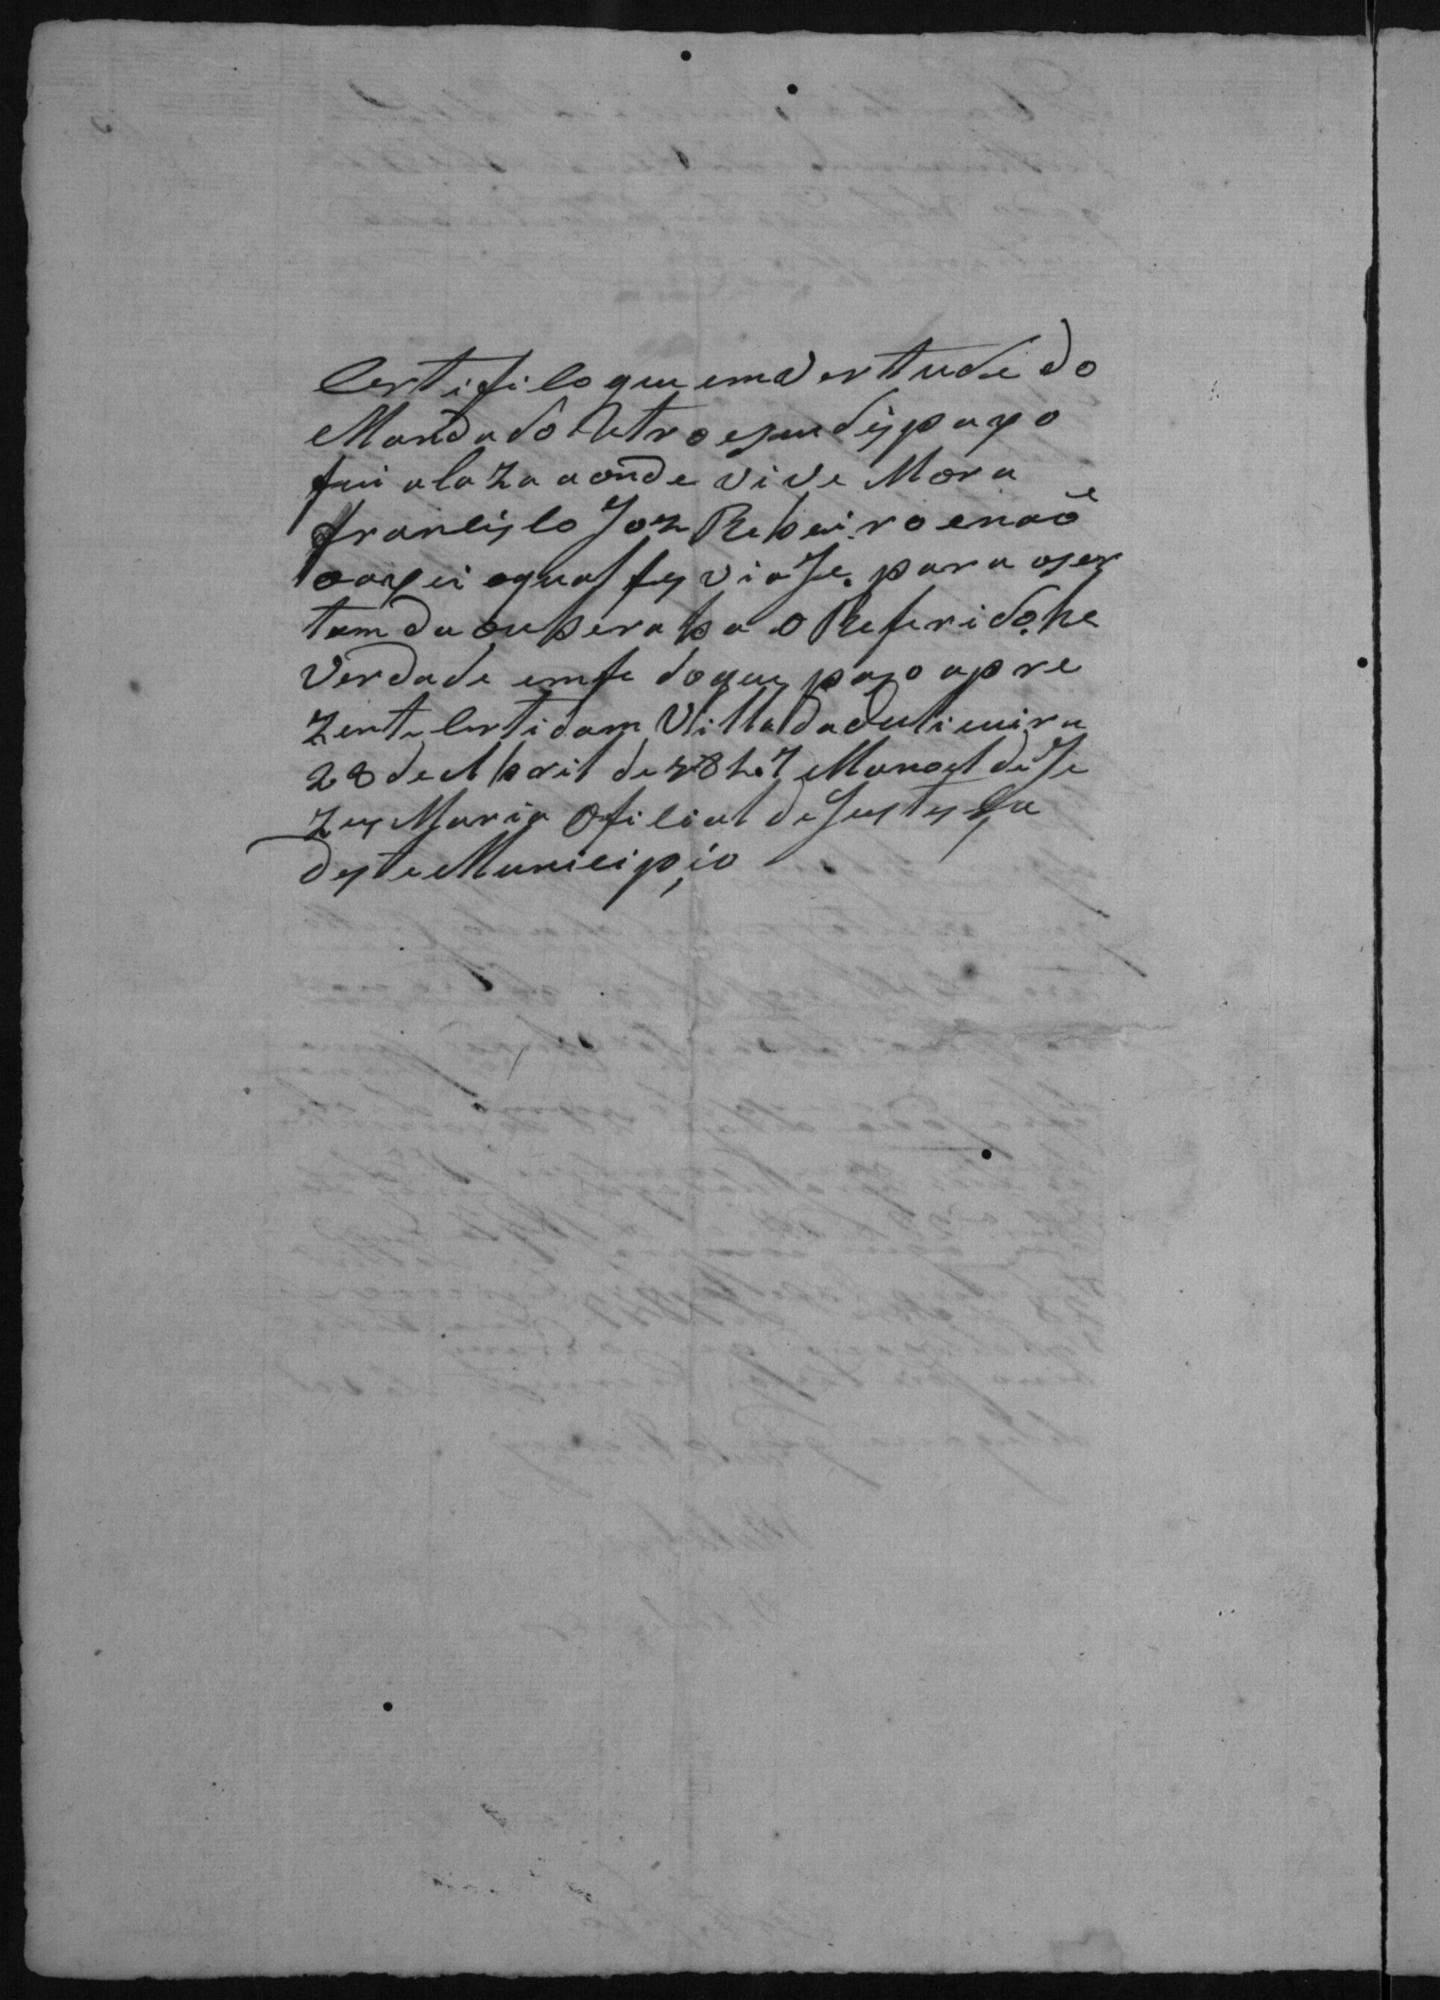 Certifico que em Vertude do
Mandado Retro e seu despaxo
fui a caza aonde vive Mora
Francisco Joze Ribeiro e naõ
o axei o qual fes viaJe para o ser
tam da O Referido he
Verdade em fe do que paso a pre
zente Certidam Villa da
28 de Abril de 1847 Manoel de Je
zus Maria Oficial de Justissa
deste Municipio